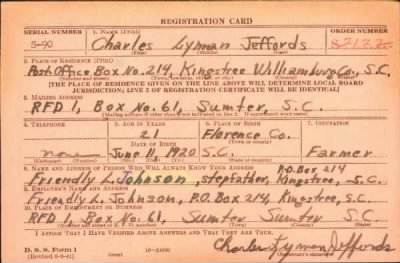 REGISTRATION CARD
SERIAL NUMBER 1. NAME (Print) ORDER NUMBER
S-90 Charles Lyman Jeffords
(First) (Middle) (Last)
2. PLACE OF RESIDENCE (Print)
Post Office Box No. 214, Kingstree Williamsburg Co., S.C.
[THE PLACE OF RESIDENCE GIVEN ON THE LINE ABOVE WILL DETERMINE LOCAL BOARD
JURISDICTION; LINE 2 OF REGISTRATION CERTIFICATE WILL BE IDENTICAL]
3. MAILING ADDRESS
RFD 1, Box No. 61, Sumter, S.C.
[Mailing address if other than place indicated on line 2. If same insert word same]
4. TELEPHONE 5. AGE IN YEARS 6. PLACE OF BIRTH 7. OCCUPATION
21 Florence Co.
DATE OF BIRTH
none June 11, 1920 S.C. Farmer
(Exchange) (Number) (Mo.) (Day) (Yr.) (State or country)
8. NAME AND ADDRESS OF PERSON WHO WILL ALWAYS KNOW YOUR ADDRESS P.O. Box 214
Friendly L. Johnson, stepfather, Kingstree, S.C.
9. EMPLOYER'S NAME AND ADDRESS
Friendly L. Johnson, P.O. Box 214, Kingstree, S.C.
10. PLACE OF EMPLOYMENT OR BUSINESS
RFD 1, Box No. 61, Sumter Sumter S.C.
I AFFIRM THAT I HAVE VERIFIED ABOVE ANSWERS AND THAT THEY ARE TRUE.
D. S. S. Form 1
(Revised 6-9-41) (over) Charles Lyman Jeffords